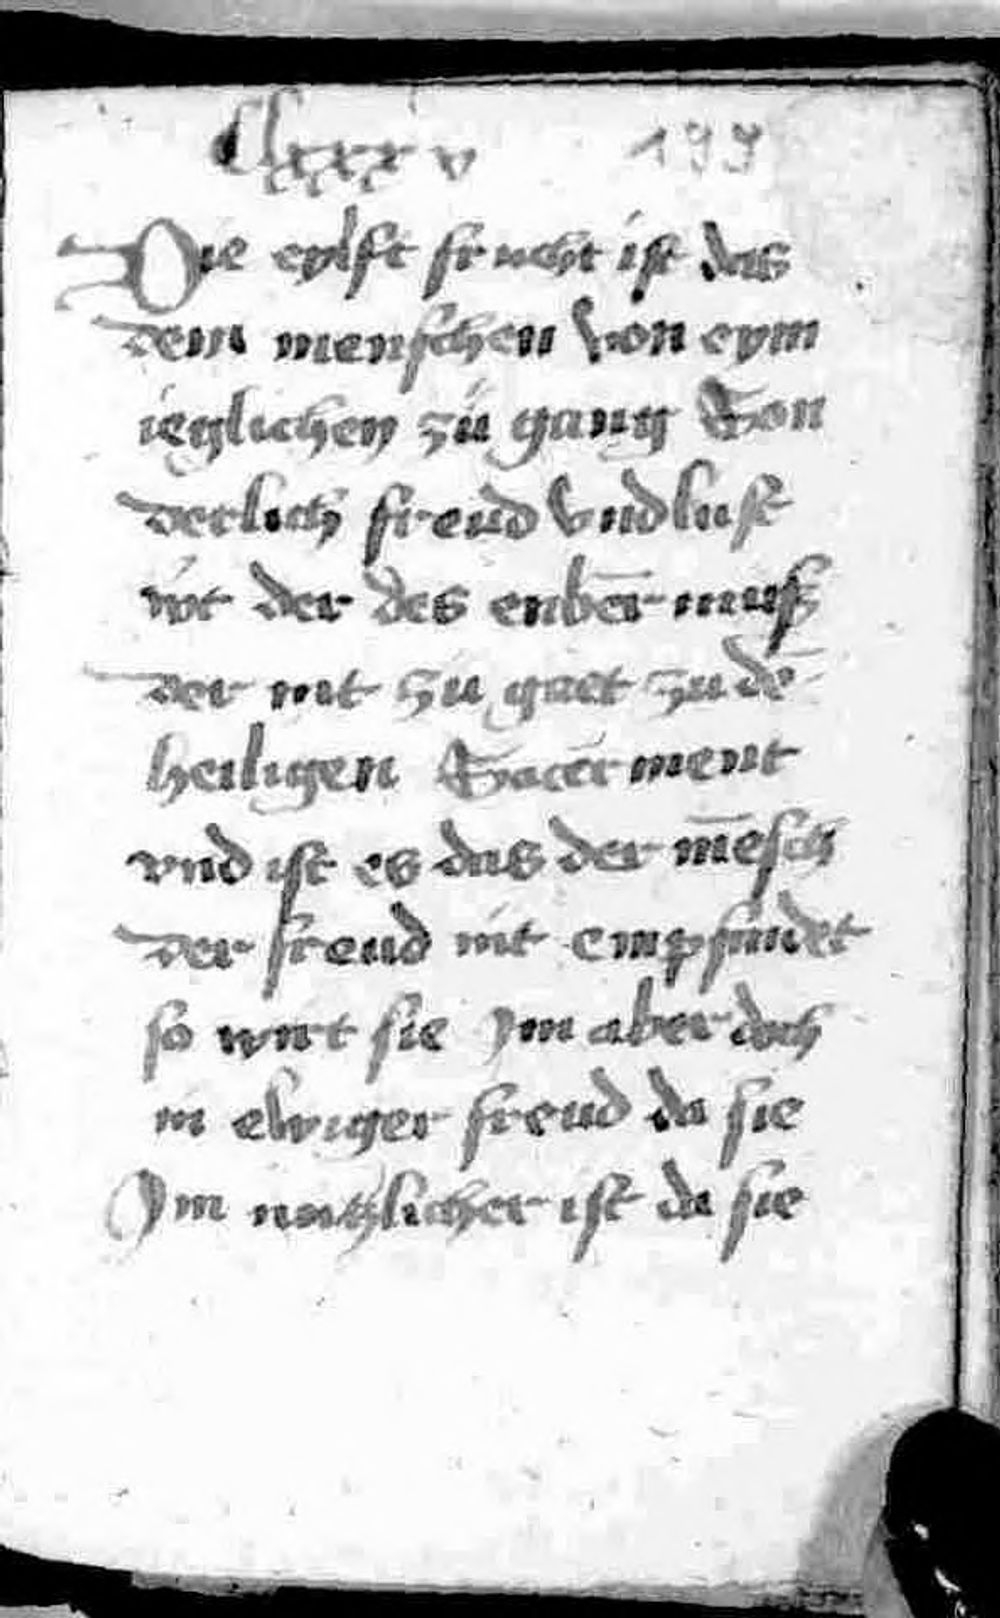 Clxxxv 199
Die eylft frucht ist das
dem menschen von eym
ieglichen zů gang Son
derlich freud vnd lust
wt der des enber̄ muß
der nit zů gaet zu dē
heiligen Sacerment
vnd ist es das der mēsch
der freud nit empfindet
so wirt sie Im aber doch
in ewiger freud da sie
Im nutzlicher ist da sie